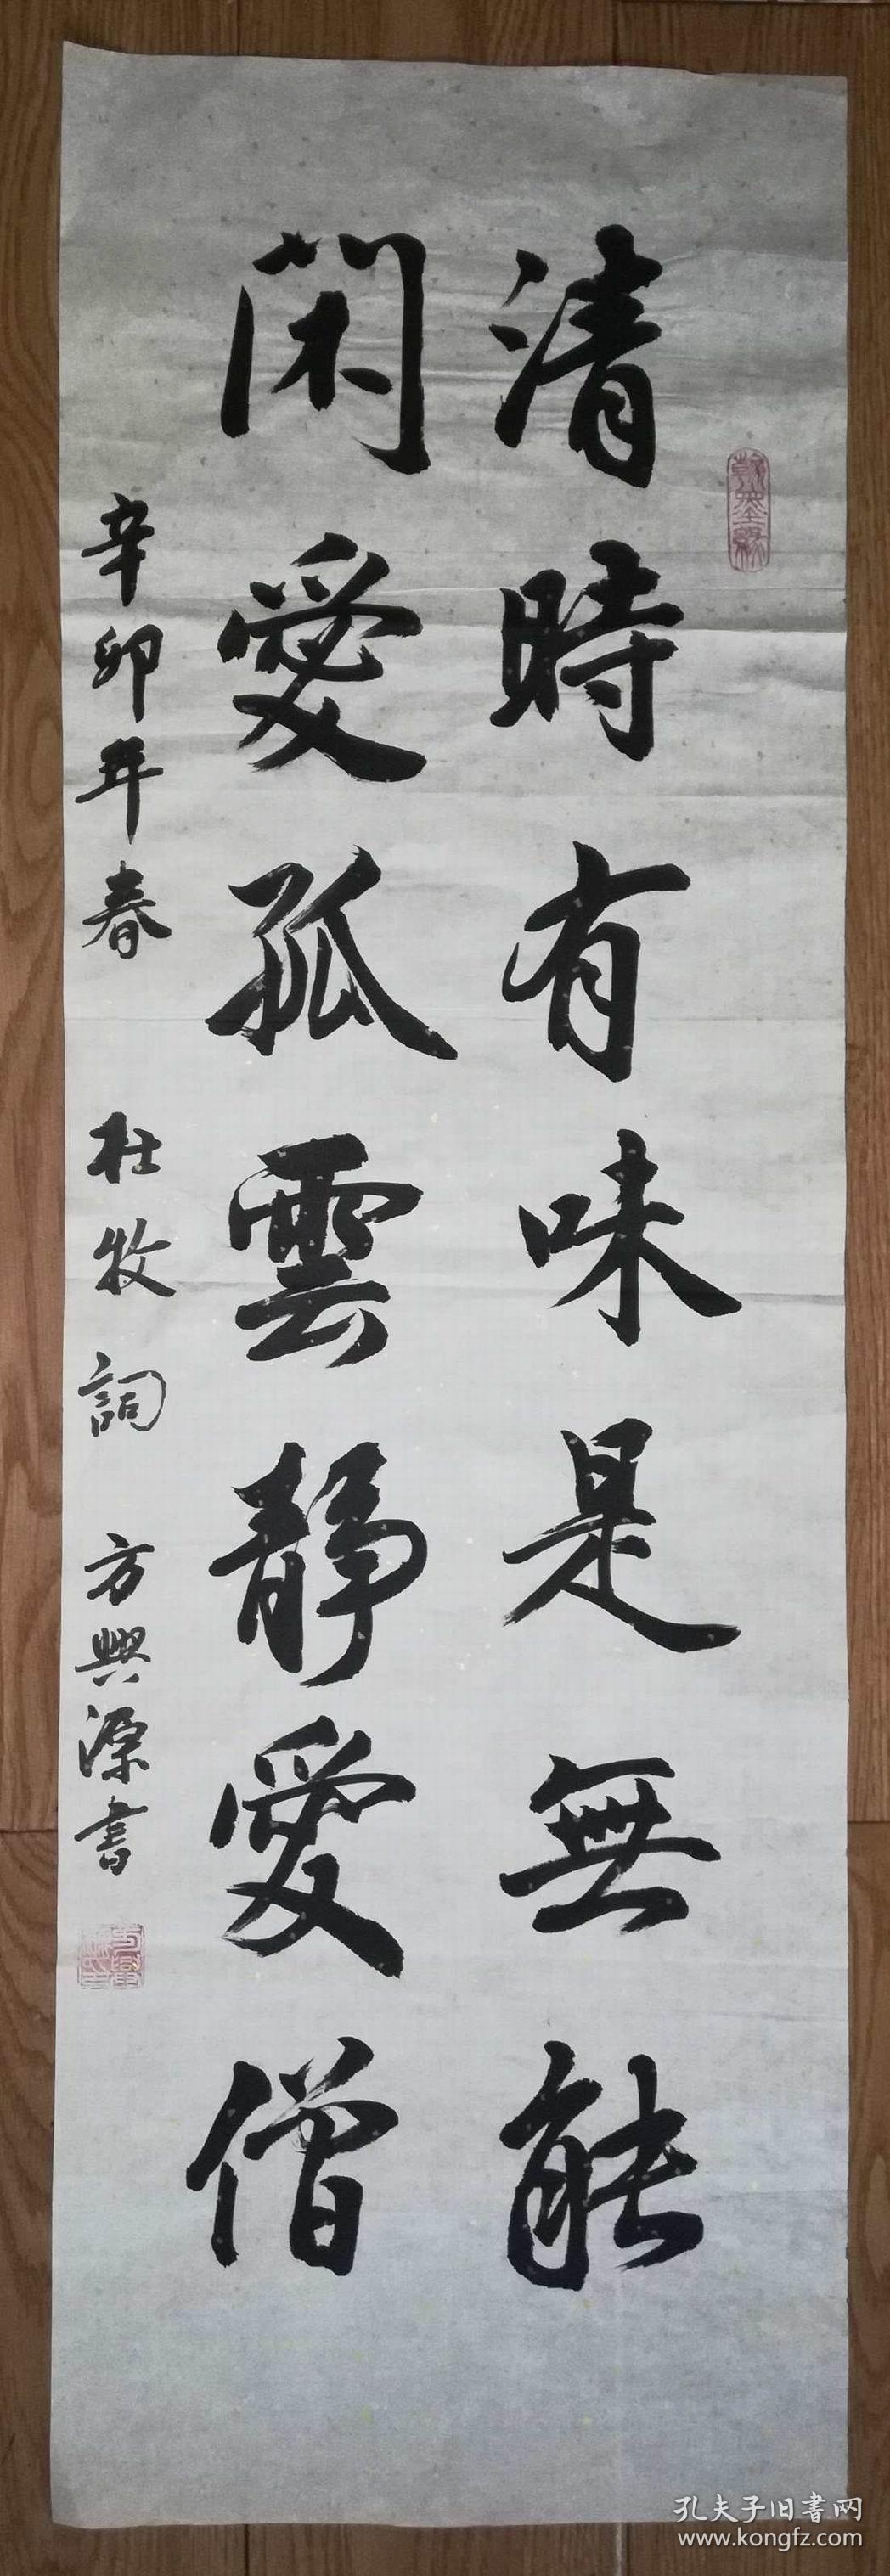 清時有味是無能
閑愛孤雲靜愛僧
辛卯年春 杜牧詞 方興源書
孔夫子旧書网
www.kongfz.com